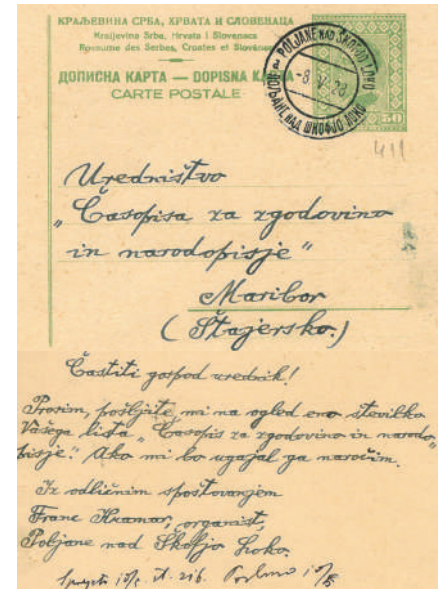 КРАЉЕВИНА СРБА, ХРВАТА И СЛОВЕНАЦА
Kraljevina Srba, Hrvata i Slovenaca
Royaume des Serbes, Croates et Slovènes
ДОПИСНА КАРТА — DOPISNA KARTA
CARTE POSTALE
POLJANE NAD ŠKOFJO LOKO
-8 V 28
ПОЉАНЕ НАД ШКОФЈО ЛОКО
50
411
Uredništvo
„Časopisa za zgodovino
in narodopisje"
Maribor
(Štajersko.)
Častiti gospod urednik!
Prosim, pošljite mi na ogled eno številko
Vašega lista „Časopis za zgodovino in narodo-
pisje." Ako mi bo ugajal ga naročim.
Iz odličnim spoštovanjem
Franc Kramar, organist,
Poljane nad Škofjo Loko.
št. 216. Poslano 10/5